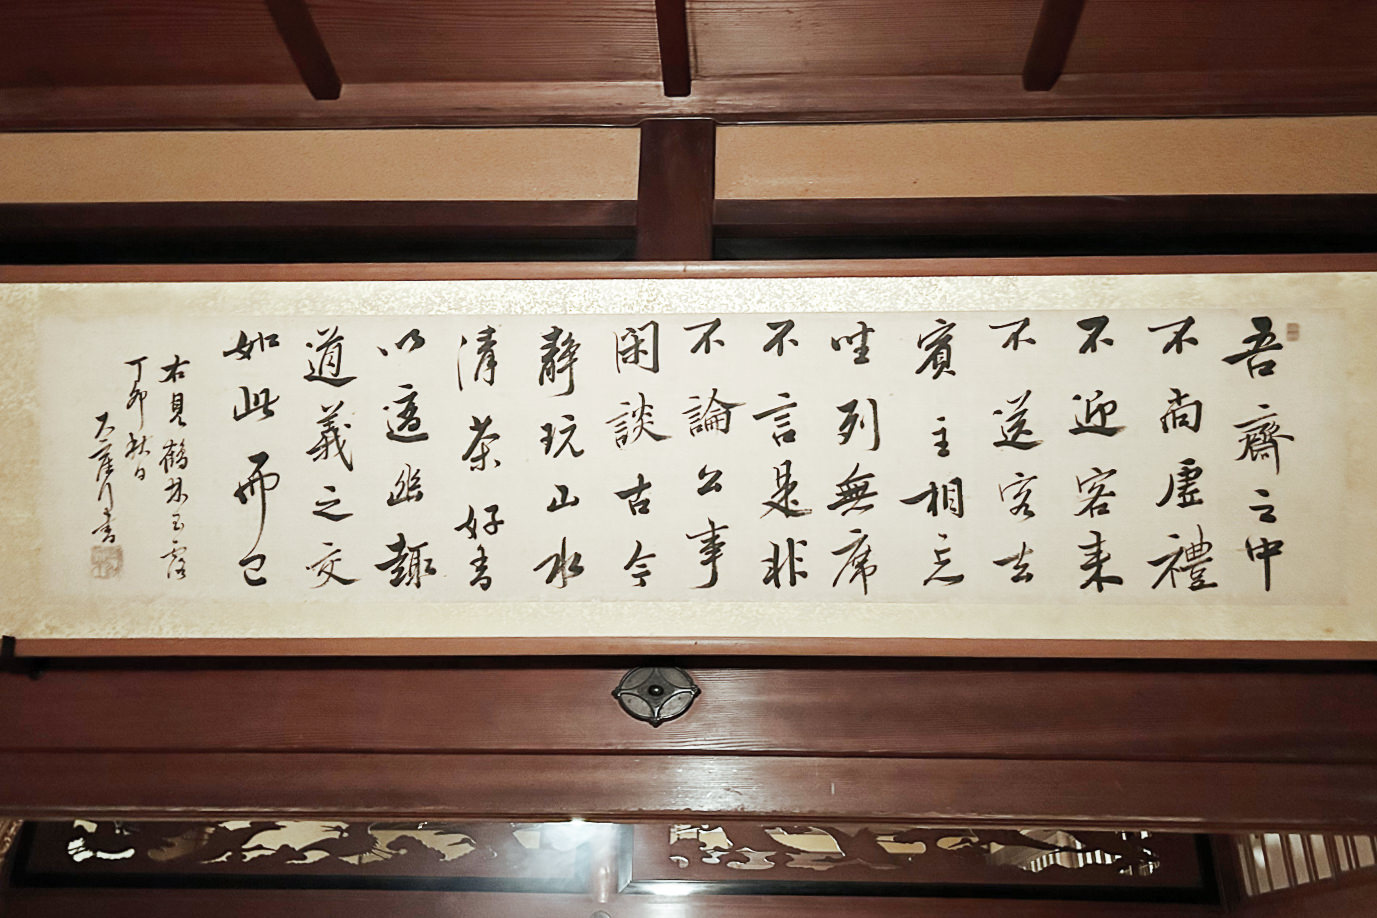 吾齋之中
不尚虚禮
不迎客来
不送客去
賓主相忘
坐列無席
不言是非
不論公事
閑談古今
静玩山水
清茶好香
以適幽趣
道義之交
如此而已
右見鶴林玉露
丁卯秋日